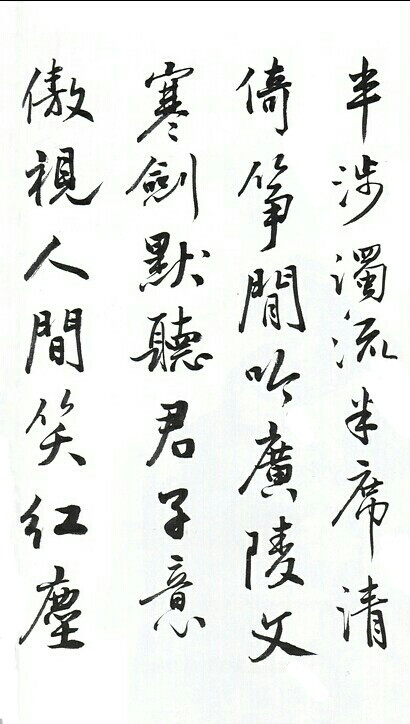 半涉濁流半席清
倚筝閒吟廣陵文
寒劍默聽君子意
傲視人間笑紅塵